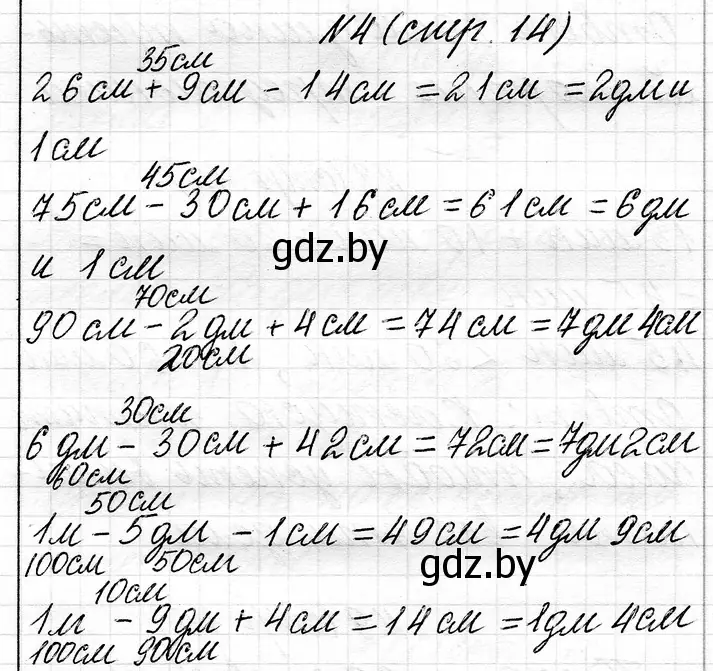 №4 (стр. 14)
35см
26см + 9см - 14см = 21см = 2дм и
1см
45см
75см - 30см + 16см = 61см = 6дм
и 1см
gdz.by
70см
90см - 2дм + 4см = 74см = 7дм 4см
20см
30см
6дм - 30см + 42см = 72см = 7дм 2см
60см
50см
1м - 5дм - 1см = 49см = 4дм 9см
100см 50см
gdz.by
10см
1м - 9дм + 4см = 14см = 1дм 4см
100см 90см